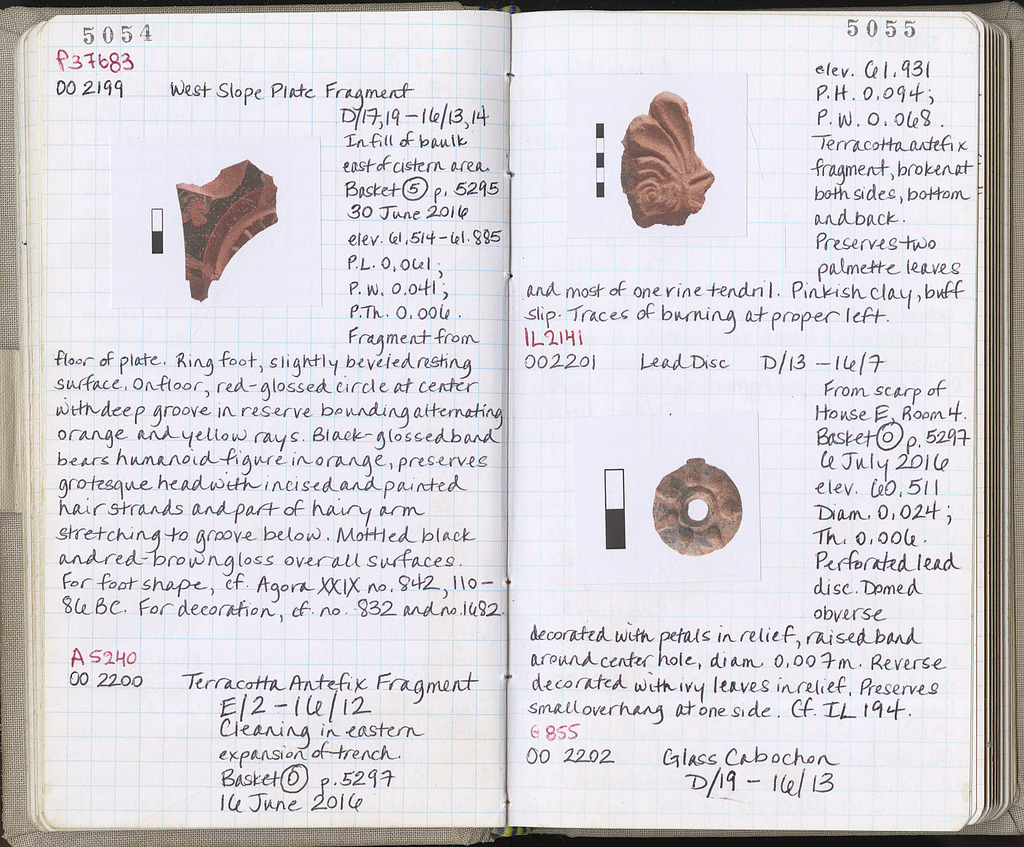 5054
P37683
OO 2199 West Slope Plate Fragment
D/17,19-16/13,14
Infill of baulk
east of cistern area.
Basket 5 p. 5295
30 June 2016
elev. 61.514-61.885
P.L. 0.061;
P.W. 0.041;
P.Th. 0.006.
Fragment from
floor of plate. Ring foot, slightly beveled resting
surface. On floor, red-glossed circle at center
with deep groove in reserve bounding alternating
orange and yellow rays. Black-glossed band
bears humanoid figure in orange, preserves
grotesque head with incised and painted
hair strands and part of hairy arm
stretching to groove below. Mottled black
and red-brown gloss over all surfaces.
For foot shape, cf. Agora XXIX no. 842, 110-
86 BC. For decoration, cf. no. 832 and no. 1682.
A 5240
OO 2200 Terracotta Antefix Fragment
E/2-16/12
Cleaning in eastern
expansion of trench.
Basket 0 p. 5297
16 June 2016
5055
elev. 61.931
P.H. 0.094;
P.W. 0.068.
Terracotta antefix
fragment, broken at
both sides, bottom
and back.
Preserves two
palmette leaves
and most of one vine tendril. Pinkish clay, buff
slip. Traces of burning at proper left.
IL2141
OO2201 Lead Disc D/13-16/7
From scarp of
House E, Room 4.
Basket 0 p. 5297
6 July 2016
elev. 60.511
Diam. 0.024;
Th. 0.006.
Perforated lead
disc. Domed
obverse
decorated with petals in relief, raised band
around center hole, diam 0.007m. Reverse
decorated with ivy leaves in relief. Preserves
small overhang at one side. Cf. IL 194.
G 855
OO 2202 Glass Cabochon
D/19-16/13